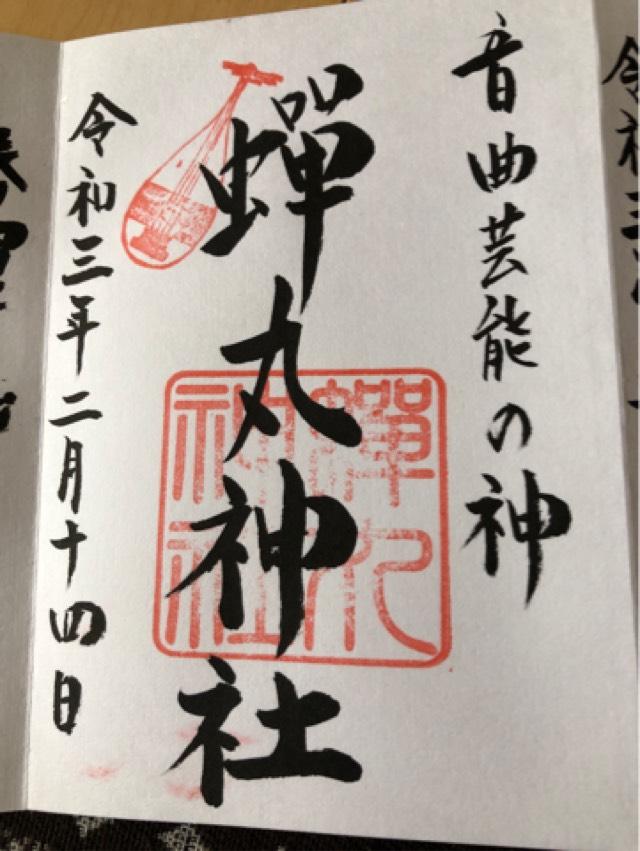 音曲芸能の神
蟬丸神社
蟬丸
神社
令和三年二月十四日